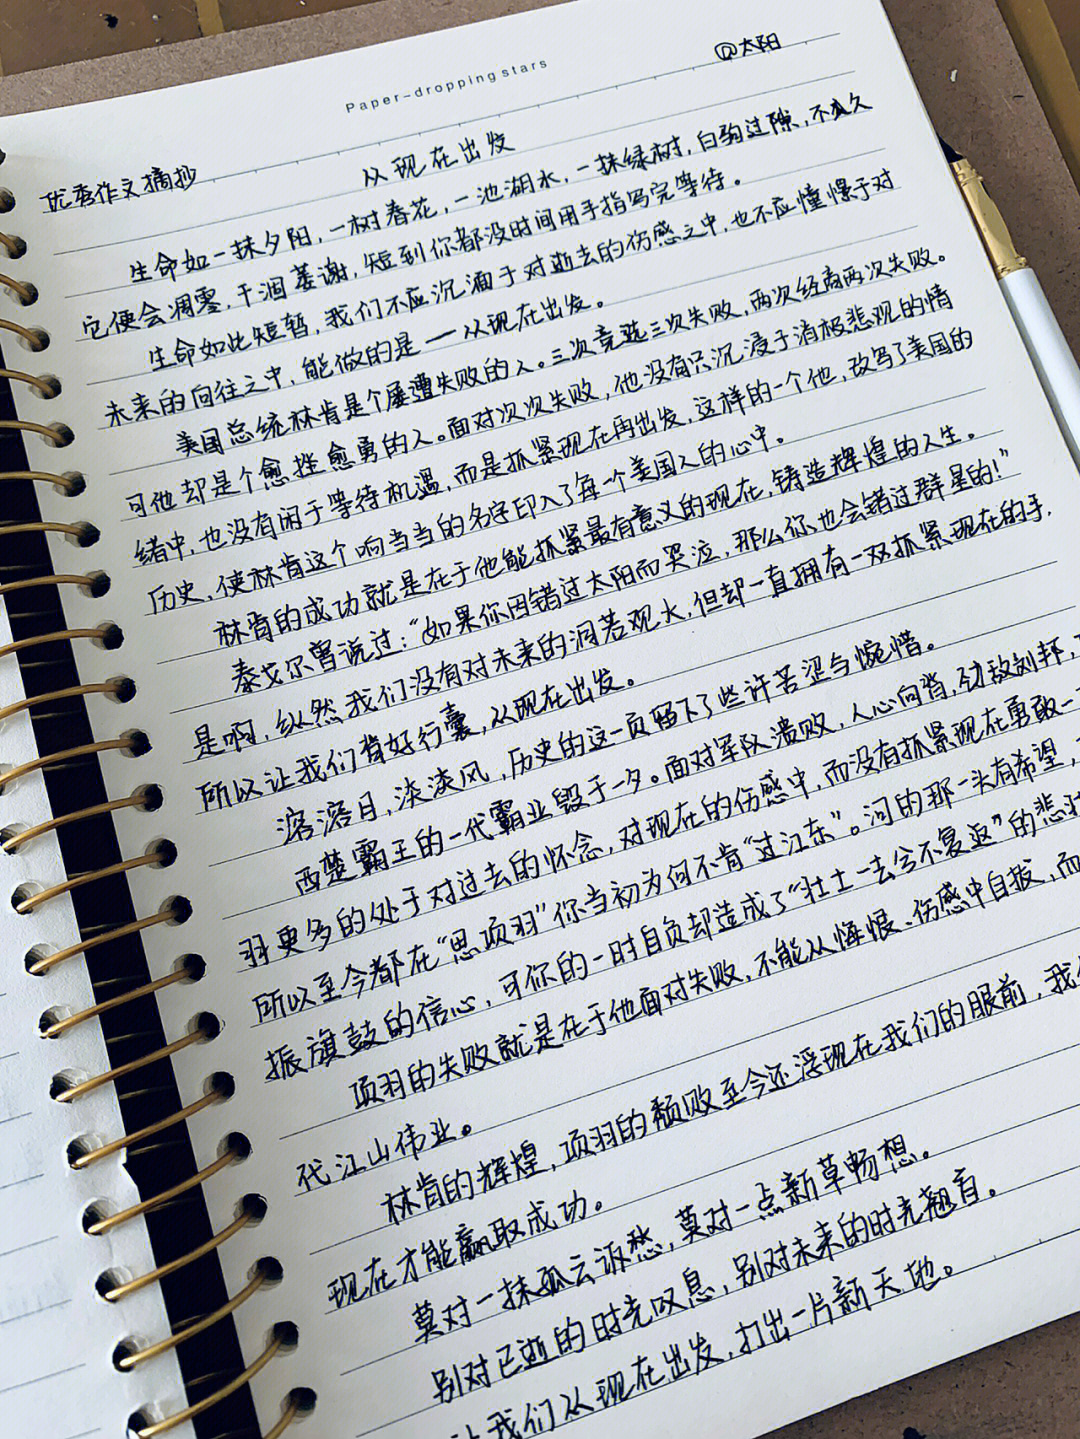 Paper-dropping stars
@太阳
优秀作文摘抄
从现在出发
生命如一抹夕阳，一树春花，一池湖水，一抹绿树，白驹过隙，不久
它便会凋零，干涸萎谢，短到你都没时间用手指写完等待。
生命如此短暂，我们不应沉湎于对逝去的伤感之中，也不应憧憬于对
未来的向往之中，能做的是——从现在出发。
美国总统林肯是个屡遭失败的人。三次竞选三次失败，两次经商两次失败。
可他却是个愈挫愈勇的人。面对次次失败，他没有只沉浸于消极悲观的情
绪中，也没有闲于等待机遇，而是抓紧现在再出发，这样的一个他，改写了美国的
历史，使林肯这个响当当的名字印入了每一个美国人的心中。
林肯的成功就是在于他能抓紧最有意义的现在，铸造辉煌的人生。
泰戈尔曾说过：“如果你因错过太阳而哭泣，那么你也会错过群星的！”
是啊，纵然我们没有对未来的洞若观火，但却一直拥有一双抓紧现在的手，
所以让我们背好行囊，从现在出发。
溶溶月，淡淡风，历史的这一页留下了些许苦涩与惋惜。
西楚霸王的一代霸业毁于一夕。面对军队溃败，人心向背，劲敌刘邦，
羽更多的处于对过去的怀念，对现在的伤感中，而没有抓紧现在勇敢一
所以至今都在“思项羽”你当初为何不肯“过江东”。河的那一头有希望，
振旗鼓的信心，可你的一时自负却造成了“壮士一去兮不复返”的悲
项羽的失败就是在于他面对失败，不能从悔恨、伤感中自拔，而
代江山伟业。
林肯的辉煌，项羽的颓败至今还浮现在我们的眼前，我
现在才能赢取成功。
莫对一抹孤云诉愁，莫对一点新草畅想。
别对已逝的时光叹息，别对未来的时光翘盲。
让我们从现在出发，打出一片新天地。